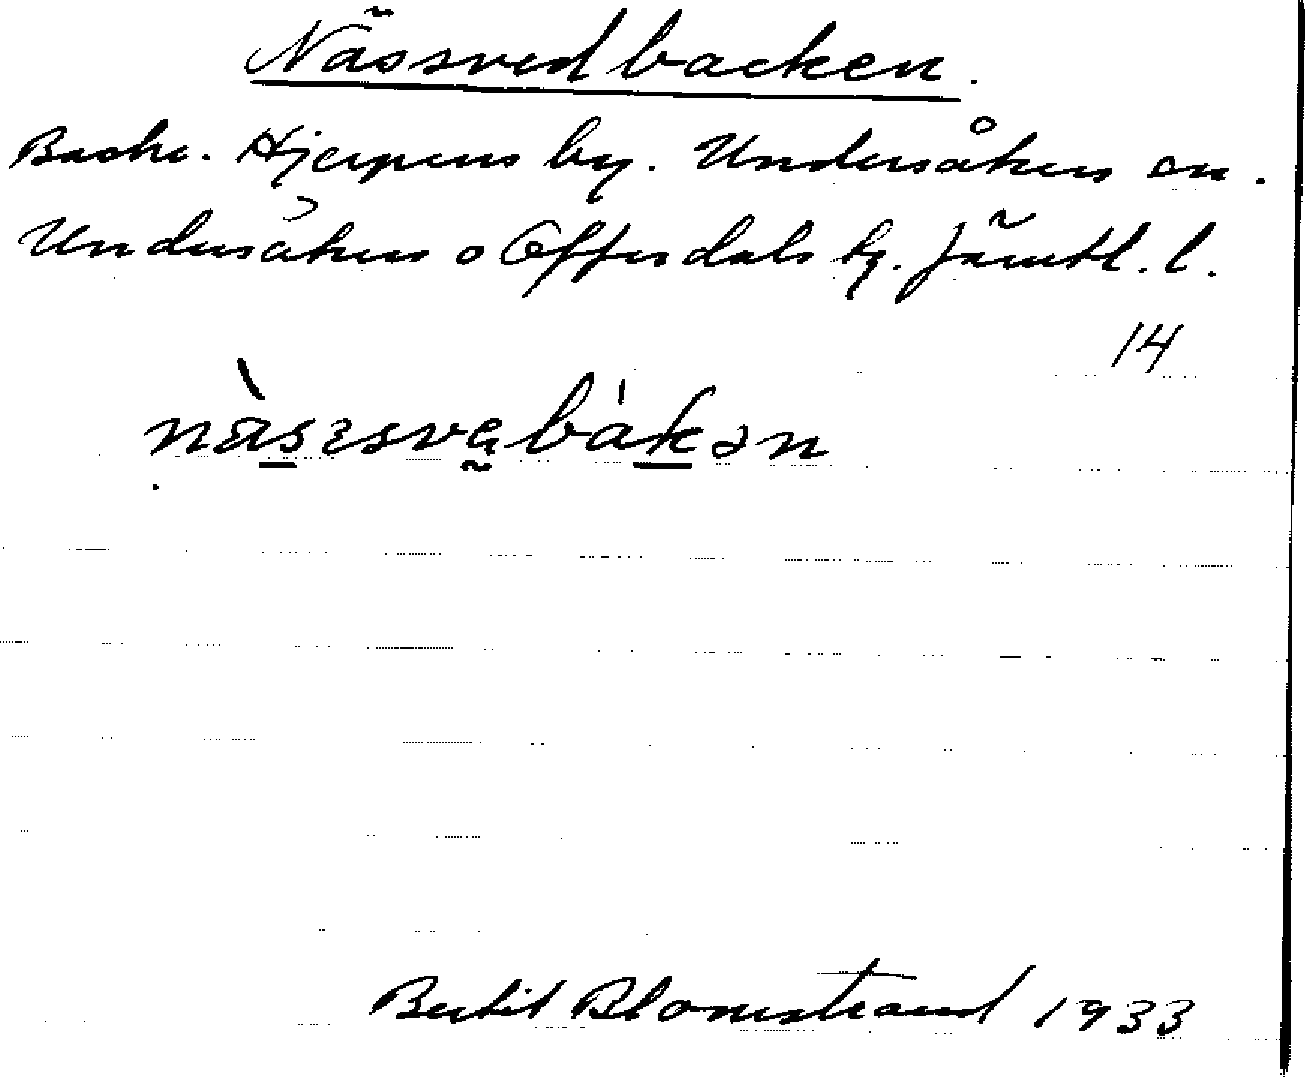 Nässvedbacken.
Backe. Hjerpens by. Undersåkers sn.
Undersåkers o Offerdals tg. Jämtl. l.
14
Bertil Blomstrand 1933